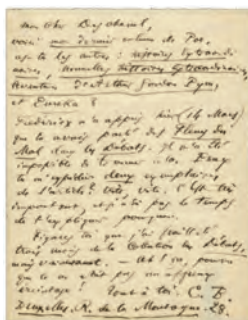 mon cher Deschamps,
voici mon dernier volume de Poe,
après les autres : histoires Extraordi-
naires, nouvelles histoires Extraordinaires,
Aventures d'Arthur Gordon Pym,
et Eureka
m'a appris hier (14 Mars)
que tu avais parlé des Fleurs du
Mal dans les Débats. Il m'a été
impossible de
m'expédier deux exemplaires
de l'article? Vite, vite, c'est très
important, et je n'ai pas le temps
de t'expliquer pourquoi.
Figure toi que j'ai feuilleté
trois mois de la collection des Débats,
mais vainement. — Ah! ça, pourvu
que tu ne sois pas un affreux
Tout à toi. C. B.
Bruxelles. R. de la Montagne. 28.